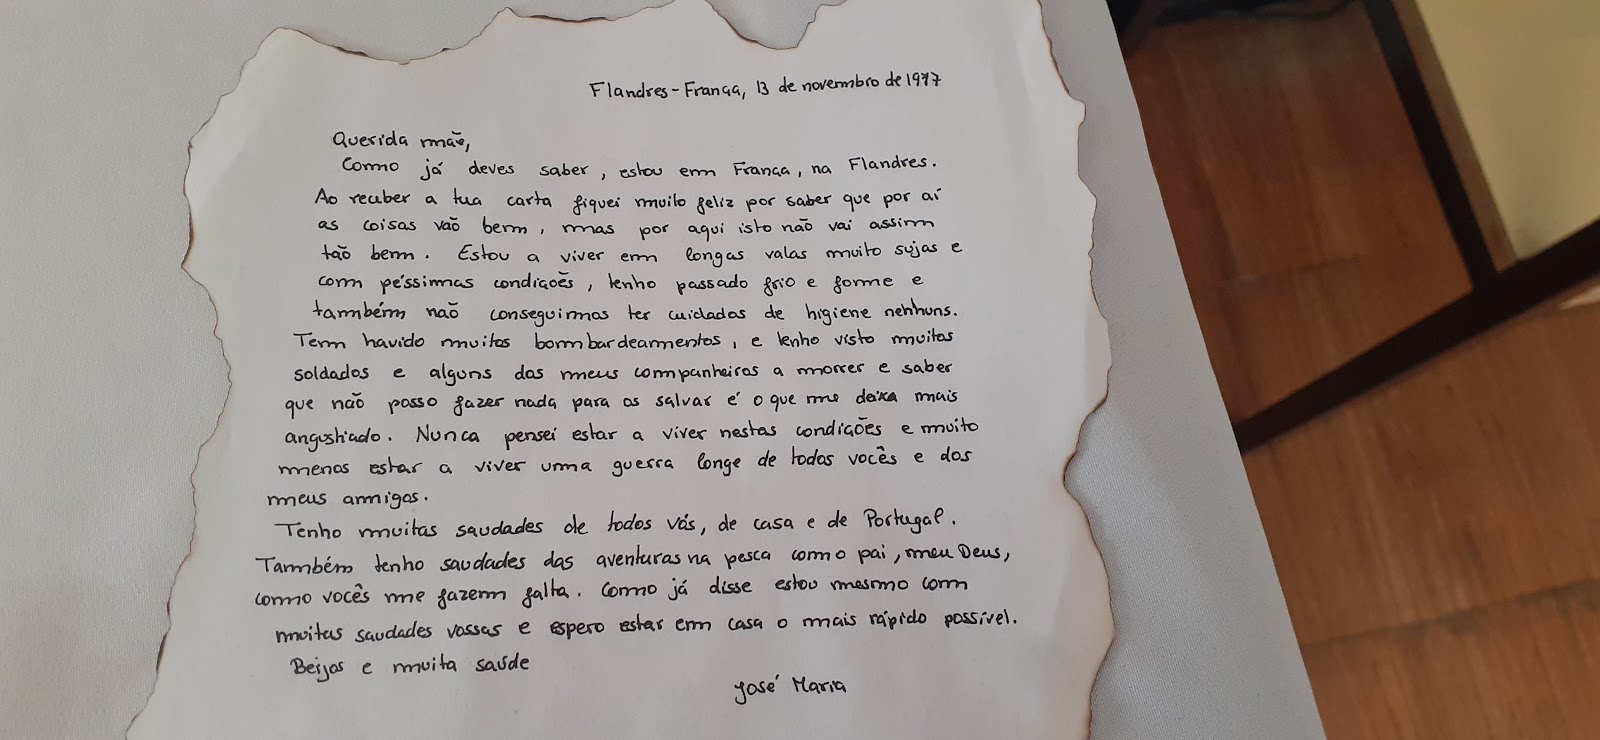 Flandres-França, 13 de novembro de 1917
Querida mãe,
Como já deves saber, estou em França, na Flandres.
Ao receber a tua carta fiquei muito feliz por saber que por aí
as coisas vão bem, mas por aqui isto não vai assim
tão bem. Estou a viver em longas valas muito sujas e
com péssimas condições, tenho passado frio e fome e
também não conseguimos ter cuidados de higiene nenhuns.
Tem havido muitos bombardeamentos, e tenho visto muitos
soldados e alguns dos meus companheiros a morrer e saber
que não posso fazer nada para os salvar é o que me deixa mais
angustiado. Nunca pensei estar a viver nestas condições e muito
menos estar a viver uma guerra longe de todos vocês e dos
meus amigos.
Tenho muitas saudades de todos vós, de casa e de Portugal.
Também tenho saudades das aventuras na pesca com o pai, meu Deus,
como vocês me fazem falta. Como já disse estou mesmo com
muitas saudades vossas e espero estar em casa o mais rápido possível.
Beijos e muita saúde
José Maria